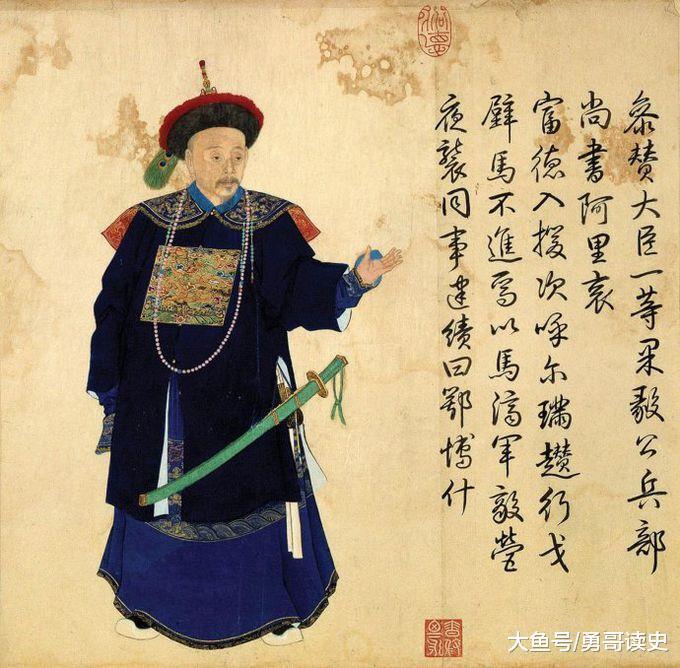 叅賛大臣一等果毅公兵部
尚書阿里袞
富德入援次呼尔璊趲行戈
壁馬不進焉以馬濟軍敵營
夜襲同事建績曰鄂博什
大鱼号/勇哥读史